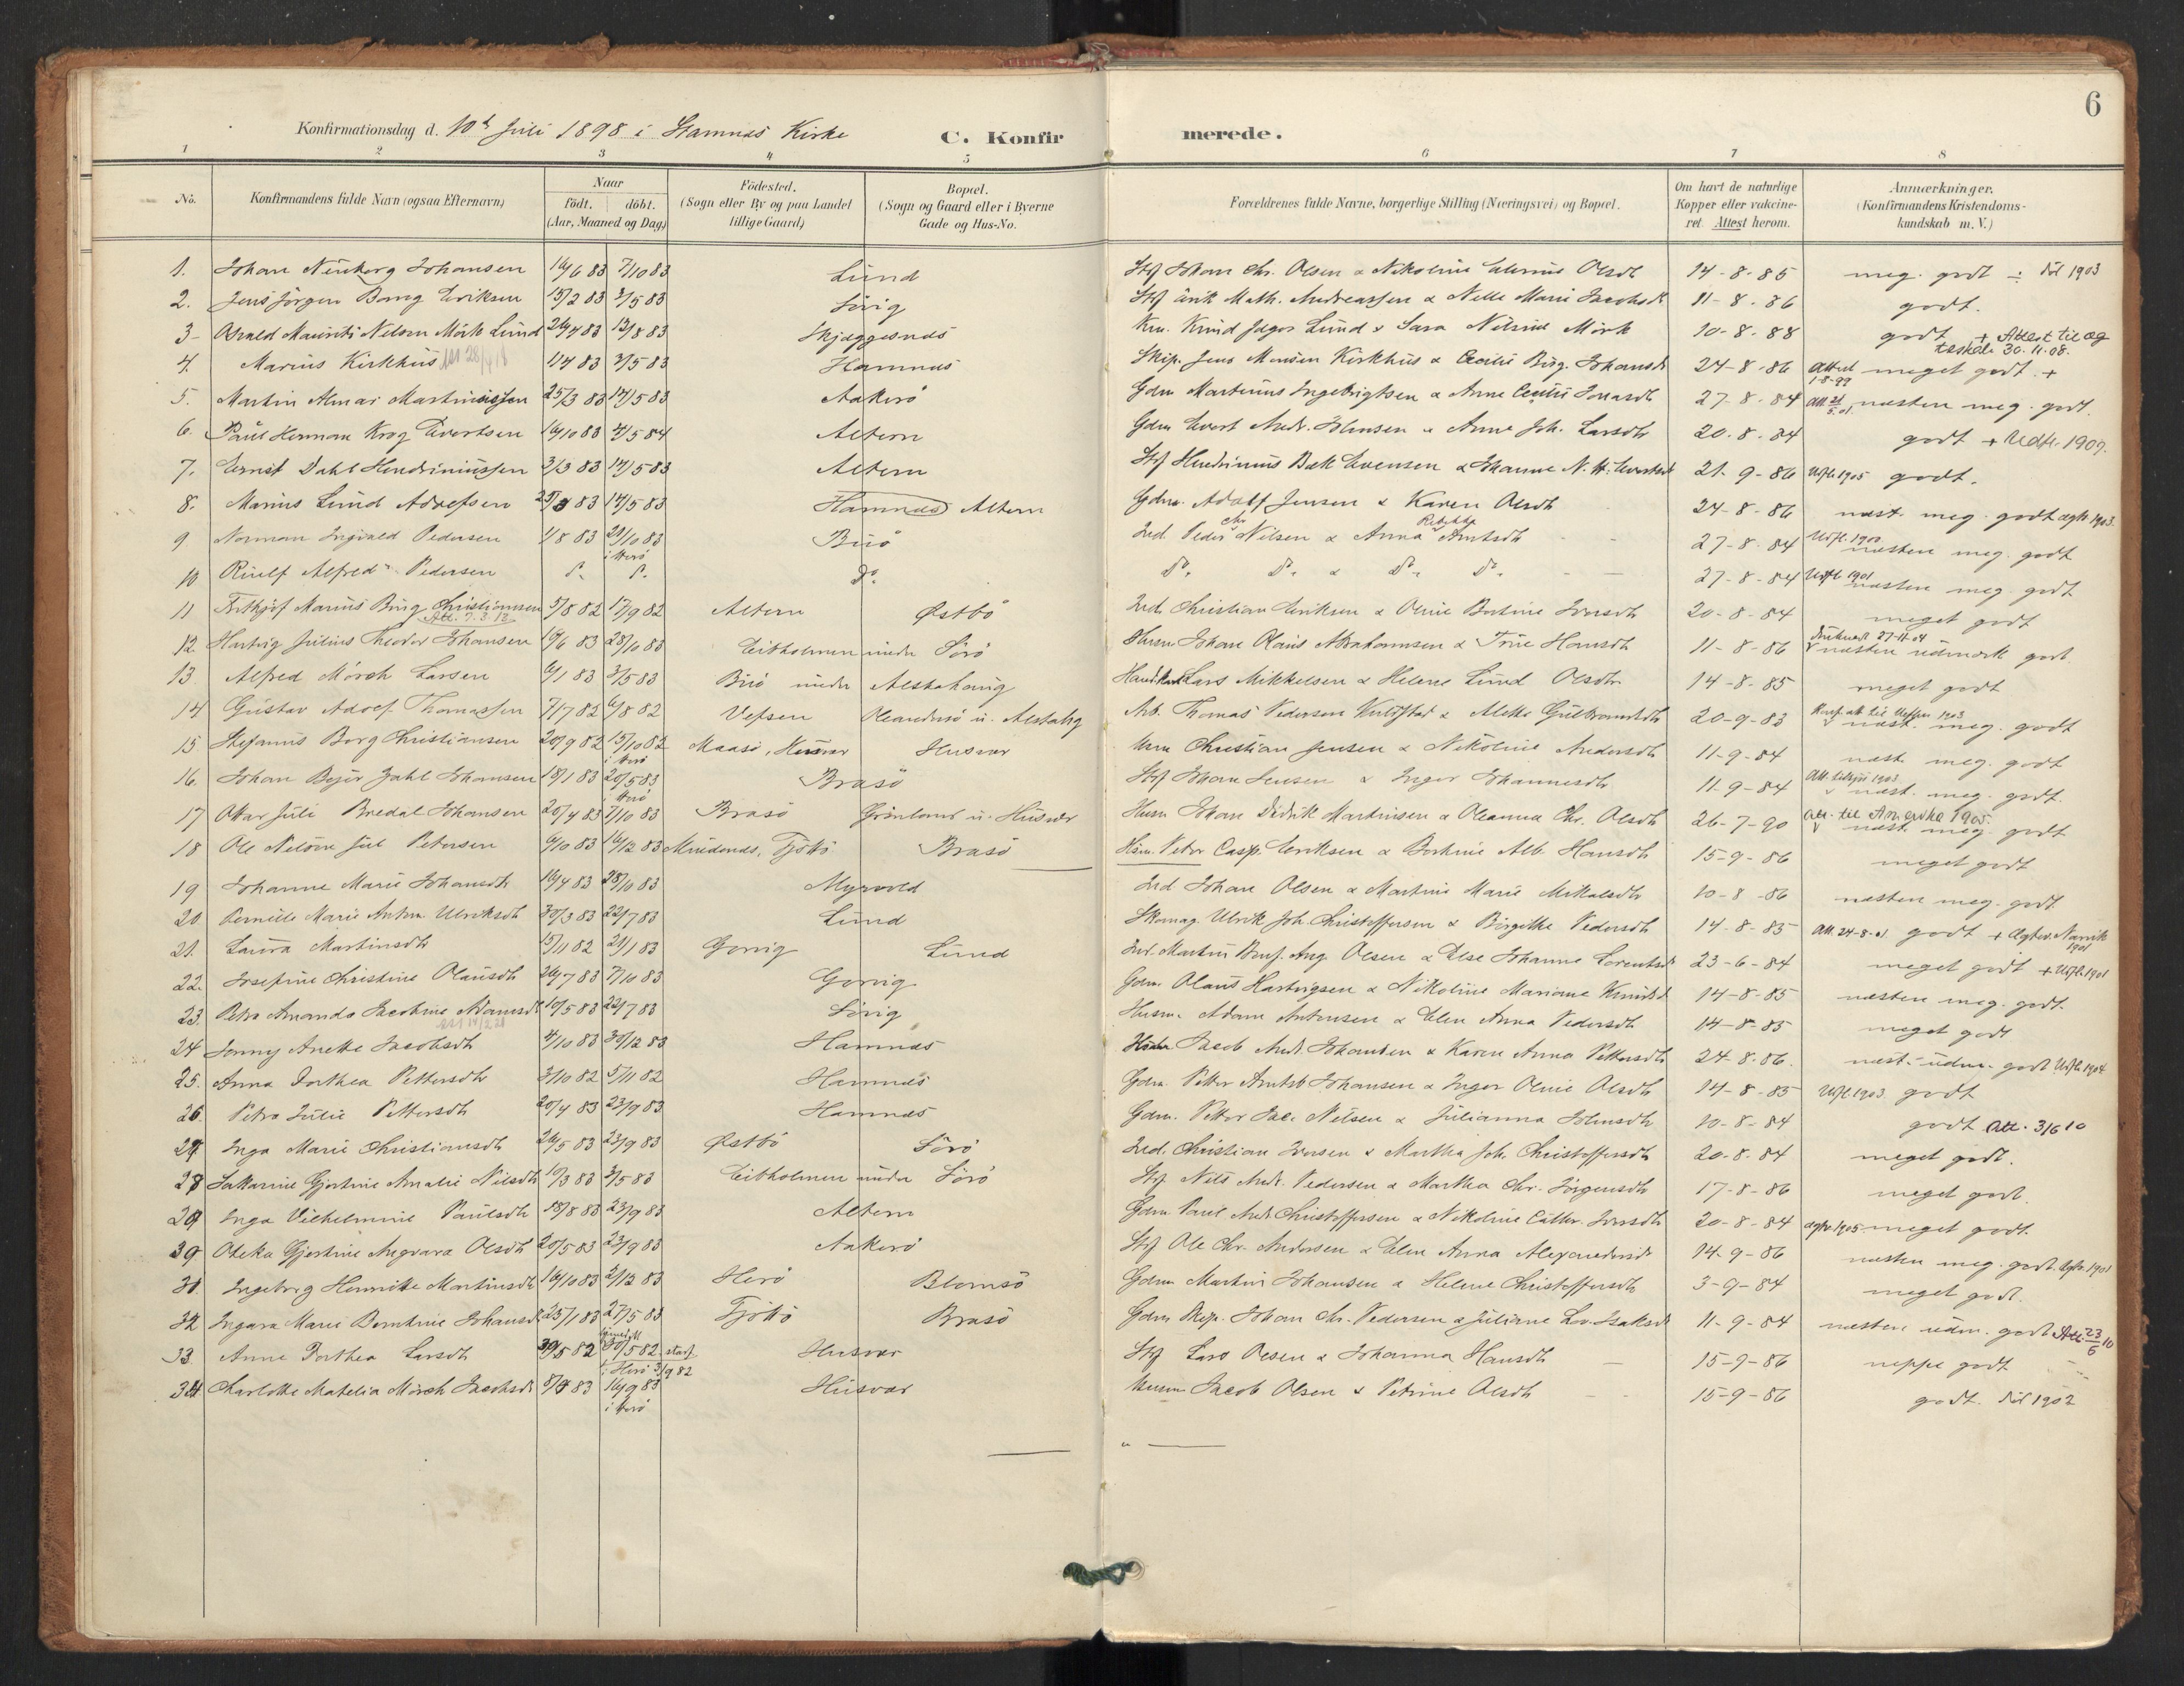 6
Konfirmationsdag d. 10de Juli 1898 i Stamnes Kirke
C. Konfirmerede.
1 2 3 4 5 6 7 8
No. | Konfirmandens fulde Navn (ogsaa Efternavn) | Naar Födt. döbt. (Aar, Maaned og Dag) | Födested. (Sogn eller By og paa Landet tillige Gaard) | Bopæl. (Sogn og Gaard eller i Byerne Gade og Hus-No. | Forældrenes fulde Navne, borgerlige Stilling (Næringsvei) og Bopæl. | Om havt de naturlige Kopper eller vakcineret. Attest herom. | Anmærkninger. (Konfirmandens Kristendomskundskab m. V.)
1. Johan Johansen 16/6 83 7/10 83 Lund Johan Chr. Olsen & Nikoline Olsdt 14-8-85 meg. godt 1903
2. Jens Jörgen Bang Eriksen 15/2 83 3/5 83 Sövig Erik Math. Andreassen & Nelle Marie Jacobsd 11-8-86 godt.
3 Osvald Mauritz Nelson Mörk Lund 26/4 83 12/8 83 Skjæggesnæs Knud Lund & Sara Mörk 10-8-88 godt + Attest til ægteskab 30.11.08.
4. Marius Kirkhus 1/4 83 3/5 83 Hamnes Skip. Jens Monsen Kirkhus & Cecilie Birg. Johansd 24-8-86 Attest 1-8-99 meget godt. +
5. Martin Almar Martinussen 25/3 83 14/5 83 Aakerö Gdm Martinus Ingebrigtsen & Anne Cecilie Jonasdt 27-8-84 næsten meg. godt.
6. Paul Herman Krog Evertsen 16/10 83 4/5 84 Altern Gdm Evert Andr. & Anne Joh. Larsdtr 20.8.84 godt + Udfl. 1907.
7. Ernst Dahl Hendrinussen 3/3 83 14/5 83 Altern Hendrinus Bek Evensen & Johanne N. H. 21-9-86 Udfl. 1905 godt.
8. Marius Lund Adolfsen 14/5 83 Hamnes Altern Gdm. Adolf Jensen & Karen Olsdt 24-8-86 næst. meg. godt ægtv. 1903.
9 Norman Ingvald Pedersen 1/8 83 29/10 83 i Herö Buö Ind. Peder Chr. Nilsen & Anna Rebekka Arntsdt 27-8-84 Udfl. 1900 næsten meg. godt
10 Rinolf Alfred Pedersen do. do. do. do. do. & do. do. 27-8-84 Udfl. 1901 næsten meg. godt
11 Fritjof Marius Buig Christiansen 5/8 82 17/9 82 Altern Østbö Ind. Christian Eriksen & Oline Bertine Iversdt 20-8-84 meget godt
Att. 7.3.13
12. Hartvig Julius Theodor Johansen 19/6 83 28/10 83 Eitholmen under Sörö Husm Johan Olaus Abrahamsen & Trine Hansdt 11-8-86 27-11-04 næsten udmærk godt.
13. Alfred Mörch Larsen 6/1 83 3/5 83 Buö under Alstahaug Lars Mikkelsen & Helene Lund Olsdtr 14-8-85 meget godt
14 Gustav Adolf Thomassen 7/7 82 6/8 82 Vefsen Oleandersö u. Alstahg Arb. Thomas Pedersen & Alette Gulbrandsdt 20-9-83 1903 næst. meg. godt
15 Stefanus Borg Christiansen 20/9 82 15/10 82 i Herö Maasö, Husvær Husvær Husm Christian Jensen & Nikoline Andersdt 11-9-84 næst. meg. godt
16. Johan Bejer Zahl Johansen 18/1 83 20/5 83 i Herö Brasö Johan Jensen & Inger Johannesdt 11-9-84 1903 næst. meg. godt.
17 Ottar Juli Bredal Johansen 20/4 83 7/10 83 Brasö Grönland u. Husvær Husm Johan Didrik Martinsen & Oleanna Chr. Olsdt 26-7-90 att. til Amerika 1905 næst. meg. godt
18 Ole Nelson Jul Petersen 6/10 83 16/12 83 Mindenes, Tjöttö Brasö Husm. Peter Casp. Eriksen & Bertine Alb. Hansdt 15-9-86 meget godt
19 Johanne Marie Johansdt 16/4 83 28/10 83 Myrvold Ind Johan Olsen & Martine Marie Mikalsdt 10-8-86 næsten meg. godt
20. Pernille Marie Anton Ulriksdt 30/3 83 22/7 83 Lund Skomag. Ulrik Joh. Christoffersen & Birgitte Pedersdt 14-8-85 Att. 24-8-01 godt + Ægtev. Narvik 1901
21. Laura Martinsdt 15/11 82 21/1 83 Gorvig Lund Ind. Martin Ang. Olsen & Else Johanne Lorentsd 23-6-84 meget godt + Udfl. 1901
22. Josefine Christine Olausdt 26/7 83 7/10 83 Gorvig Gdm. Olaus Hartvigsen & Nikoline Mariane Knudsd 14-8-85 næsten meg. godt.
23. Petra Amanda Jacobine Adamsd 10/5 83 22/7 83 Sövig Husm. Adam Antonsen & Elen Anna Pedersdt 14-8-85 meget godt
24 Jenny Anette Jacobsdt 4/10 83 30/12 83 Hamnes Jacob Andr. Johansen & Karen Anna Pettersdt 24-8-86. næst. udm. godt Udfl. 1904
25. Anna Dorthea Pettersdt 3/10 82 5/11 82 Hamnes Gdm. Petter Arntsb Johansen & Inger Oline Olsdt 14-8-85 Udfl. 1903. godt
26. Petra Julie Pettersdt 20/4 83 23/9 83 Hamnes Gdm. Petter Jac. Nilsen & Julianna Johnsdt 10-8-84 godt Att. 3/6 10
27 Inga Marie Christiansdt 26/5 83 23/9 83 Østbö Sörö Ind. Christian Iversen & Martha Joh. Christoffersdt 20-8-84 meget godt.
28 Sakarine Gjertine Amalie Nilsdt 10/3 83 3/5 83 Eitholmen under Sörö Nils Andr. Pedersen & Martha Chr. Jörgensdt 17-8-86 meget godt.
29 Inga Vilhelmine Paulsdt 18/8 83 23/9 83 Altern Gdm Paul Andr. Christoffersen & Nikoline Cathr. Iversdt 20-8-84 ægtv. 1905 meget godt.
30 Oteka Gjertine Angvara Olsdt 20/5 83 23/9 83 Aakerö Ole Chr. Andersen & Elen Anna Alexandersd 14-9-86 næsten meg. godt. Ægtv. 1901
31. Ingeborg Henrikke Martinusdt 16/10 83 2/12 83 Herö Blomsö Gdm Martin Johansen & Helene Christoffersdt 3-9-84 meget godt.
32 Ingara Marie Berntine Johansd 25/1 83 27/5 83 Tjöttö Brasö Gdm Skip. Johan Chr. Pedersen & Juliane Lov. Isaksd 11-9-84 næsten udm. godt Att 23/6 10
33. Anne Dorthea Larsdt 30/5 82 hjemmedt 30/5 82 stadf. i Herö 3/9 82 Husvær Lars Olsen & Johanna Hansdt 15-9-86 neppe godt
34 Charlotte Matelia Mörch Jacobsd 83 16/9 83 i Herö Husvær Husm Jacob Olsen & Petrine Olsdt 15-9-86 godt. 1902